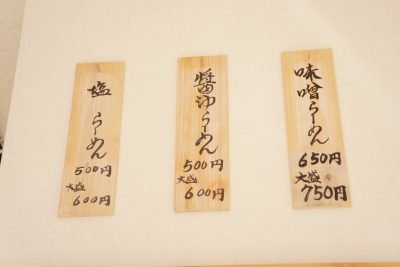 塩らーめん
500円
大盛
600円
醤油らーめん
500円
大盛
600円
味噌らーめん
650円
大盛
750円